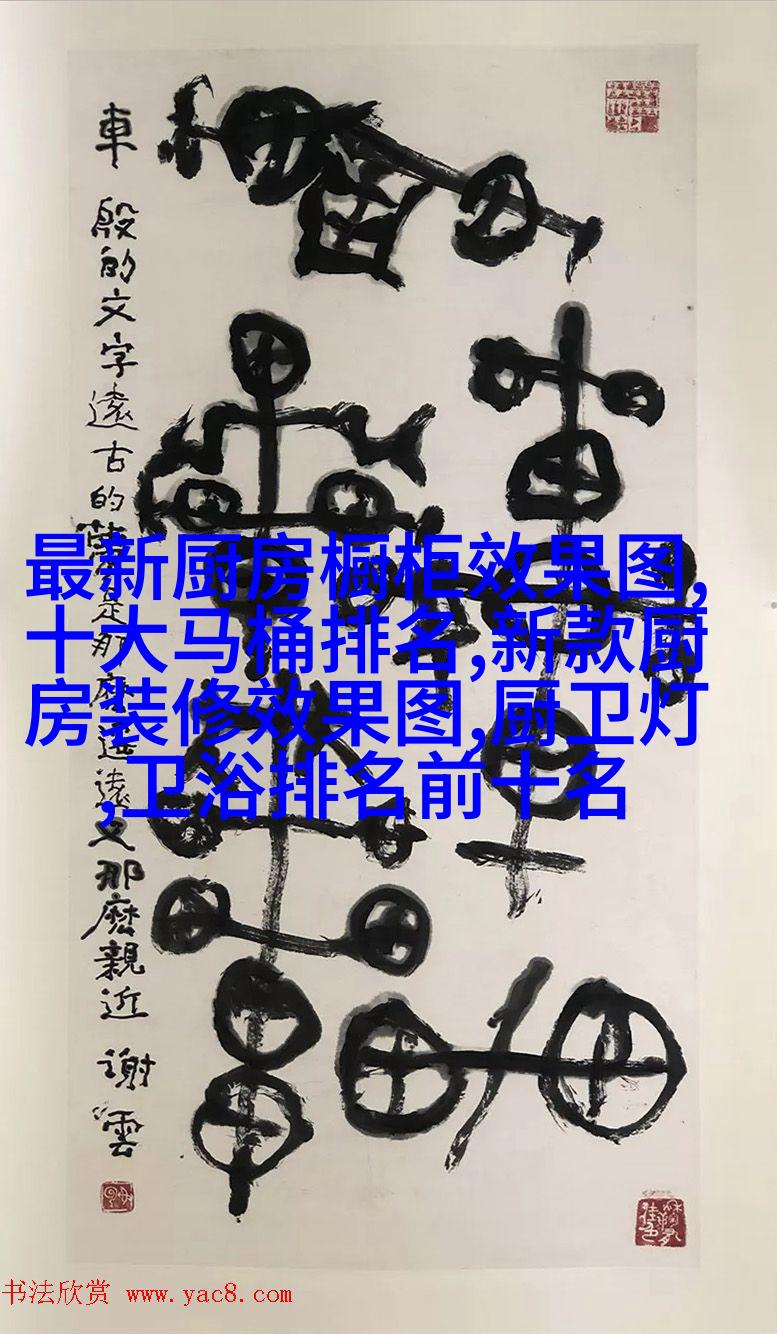 車 殷的文字遠古的是那麼遙遠又那麼親近 謝雲
最新厨房橱柜效果图,
十大马桶排名,新款厨
房装修效果图,厨卫灯
,卫浴排名前十名
书法欣赏 www.yac8.com